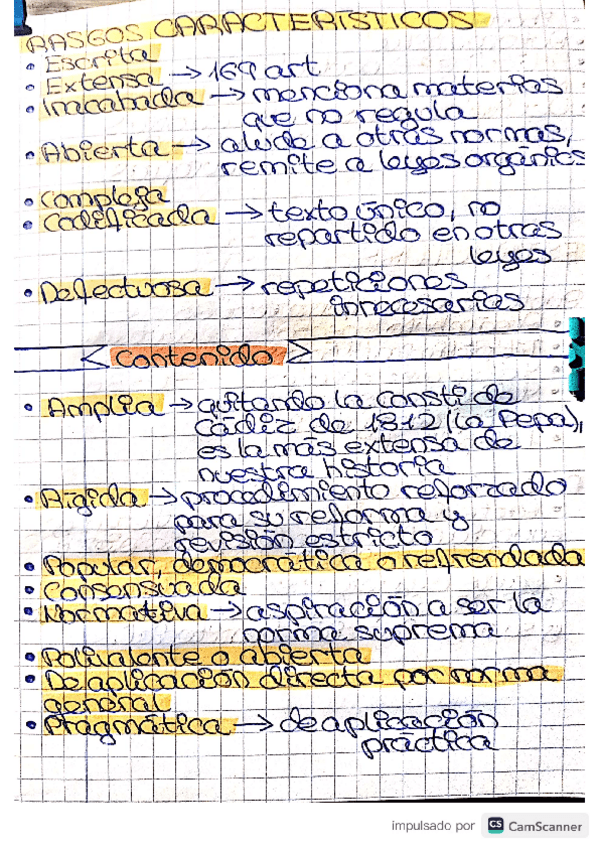 RASGOS CARACTERÍSTICOS
• Escrita
• Extensa → 169 art
• Inacabada → menciona materias
que no regula
• Abierta → alude a otras normas,
remite a leyes orgánicas
• Compleja
• Codificada → texto único, no
repartido en otras
leyes
• Defectuosa → repeticiones
innecesarias
Contenido
• Amplia → quitando la consti de
Cádiz de 1812 (La Pepa),
es la más extensa de
nuestra historia
• Rígida → procedimiento reforzado
para su reforma y
revisión estricto
• Popular, democrática o refrendada
• Consensuada
• Normativa → aspiración a ser la
norma suprema
• Polivalente o abierta
• De aplicación directa por norma
general
• Pragmática → de aplicación
práctica
impulsado por CS CamScanner